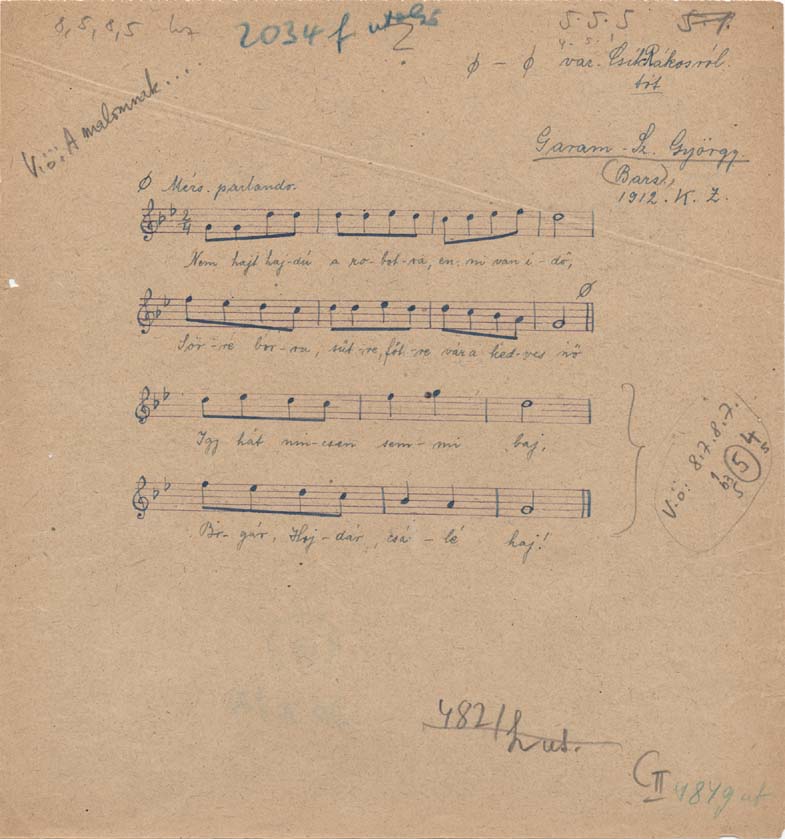 8, 5, 8, 5
2034 f utolsó
?
5. 5. 5 5. 1.
4. 5. 1
ø – ø var. CsíkRákosról.
tót
V.ö.: A malomnak....
Garam-Sz. György.
(Bars),
1912. K. Z.
ø Mérs. parlando.
2/4
Nem hajt haj-dú a ro-bot-ra, en-ni van i-dő,
Sör-ré bór-ra, sűt-re, főt-re vár a ked-ves nő
ø
Igy hát nin-csen sem-mi baj,
Bo-gár, Haj-dár, csá-lé haj!
V.ö: 8.7.8.7.
1 5 4
b3 5
5
482/
ut.
C II 484g ut